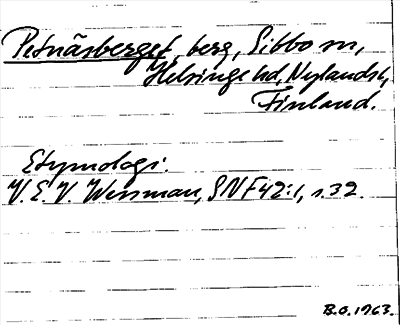 Petnäsberget, berg, Sibbo sn,
Helsinge hd, Nylands l,
Finland.
Etymologi.
V. E. V. Wessman, SNF 42:1, s. 32.
B.O. 1963.